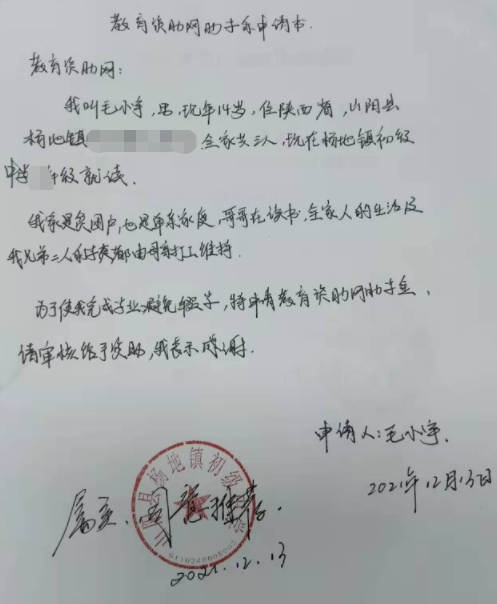 教育资助网助学金申请书.
教育资助网:
我叫毛小宇, 男, 现年14岁, 住陕西省, 山阳县
杨地镇 全家共三人, 现在杨地镇初级
中学 年级就读.
我家是贫困户, 也是单亲家庭, 哥哥在读书, 全家人的生活及
我兄弟二人的学费都由母亲打工维持.
为了使我完成学业避免辍学, 特申请教育资助网助学金,
请审核给予资助, 我表示感谢.
申请人: 毛小宇.
2021年12月13日
属实. 同意推荐.
山阳县杨地镇初级
2021.12.13